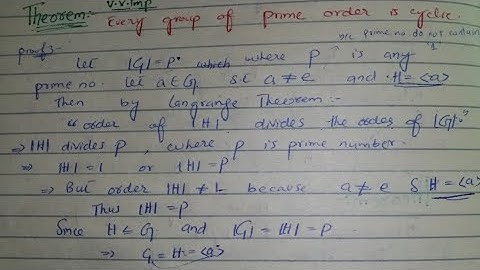 V.V.Imp
Theorem:- Every group of prime order is cyclic.
proof:- Let |G| = P which where P is any
prime no do not contain '1'
prime no. Let a ∈ G s.t a ≠ e and H = <a>
Then by Langrange Theorem:-
"order of |H| divides the order of |G|."
⇒ |H| divides P, where P is prime number.
⇒ |H| = 1 or |H| = P
⇒ But order |H| ≠ 1 because a ≠ e & H = <a>
Thus |H| = P
Since H ≤ G and |G| = |H| = P.
⇒ G = H = <a>